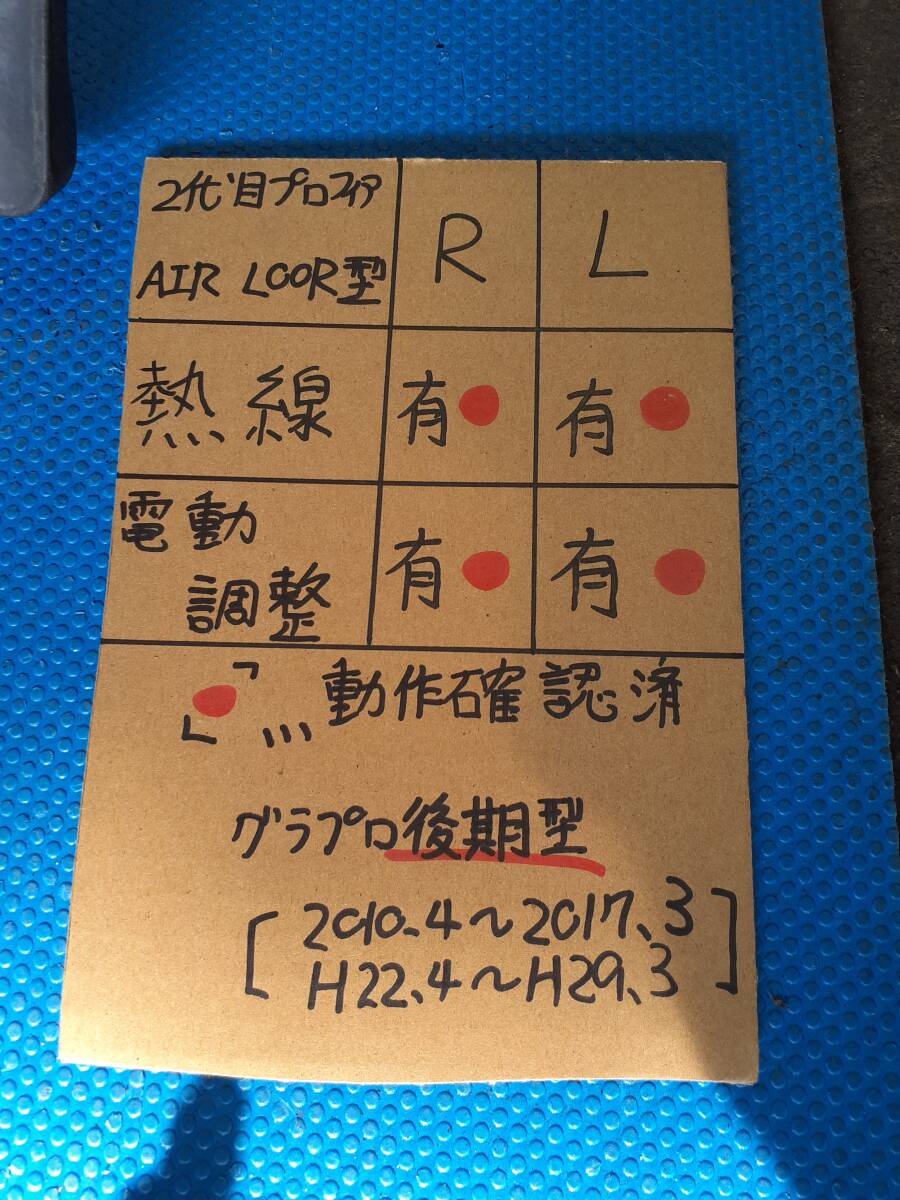 2代目プロフィア
AIR LOOR型
R
L
熱線
有
有
電動
調整
有
有
「 」...動作確認済
グラプロ後期型
[2010.4～2017.3
H22.4～H29.3]